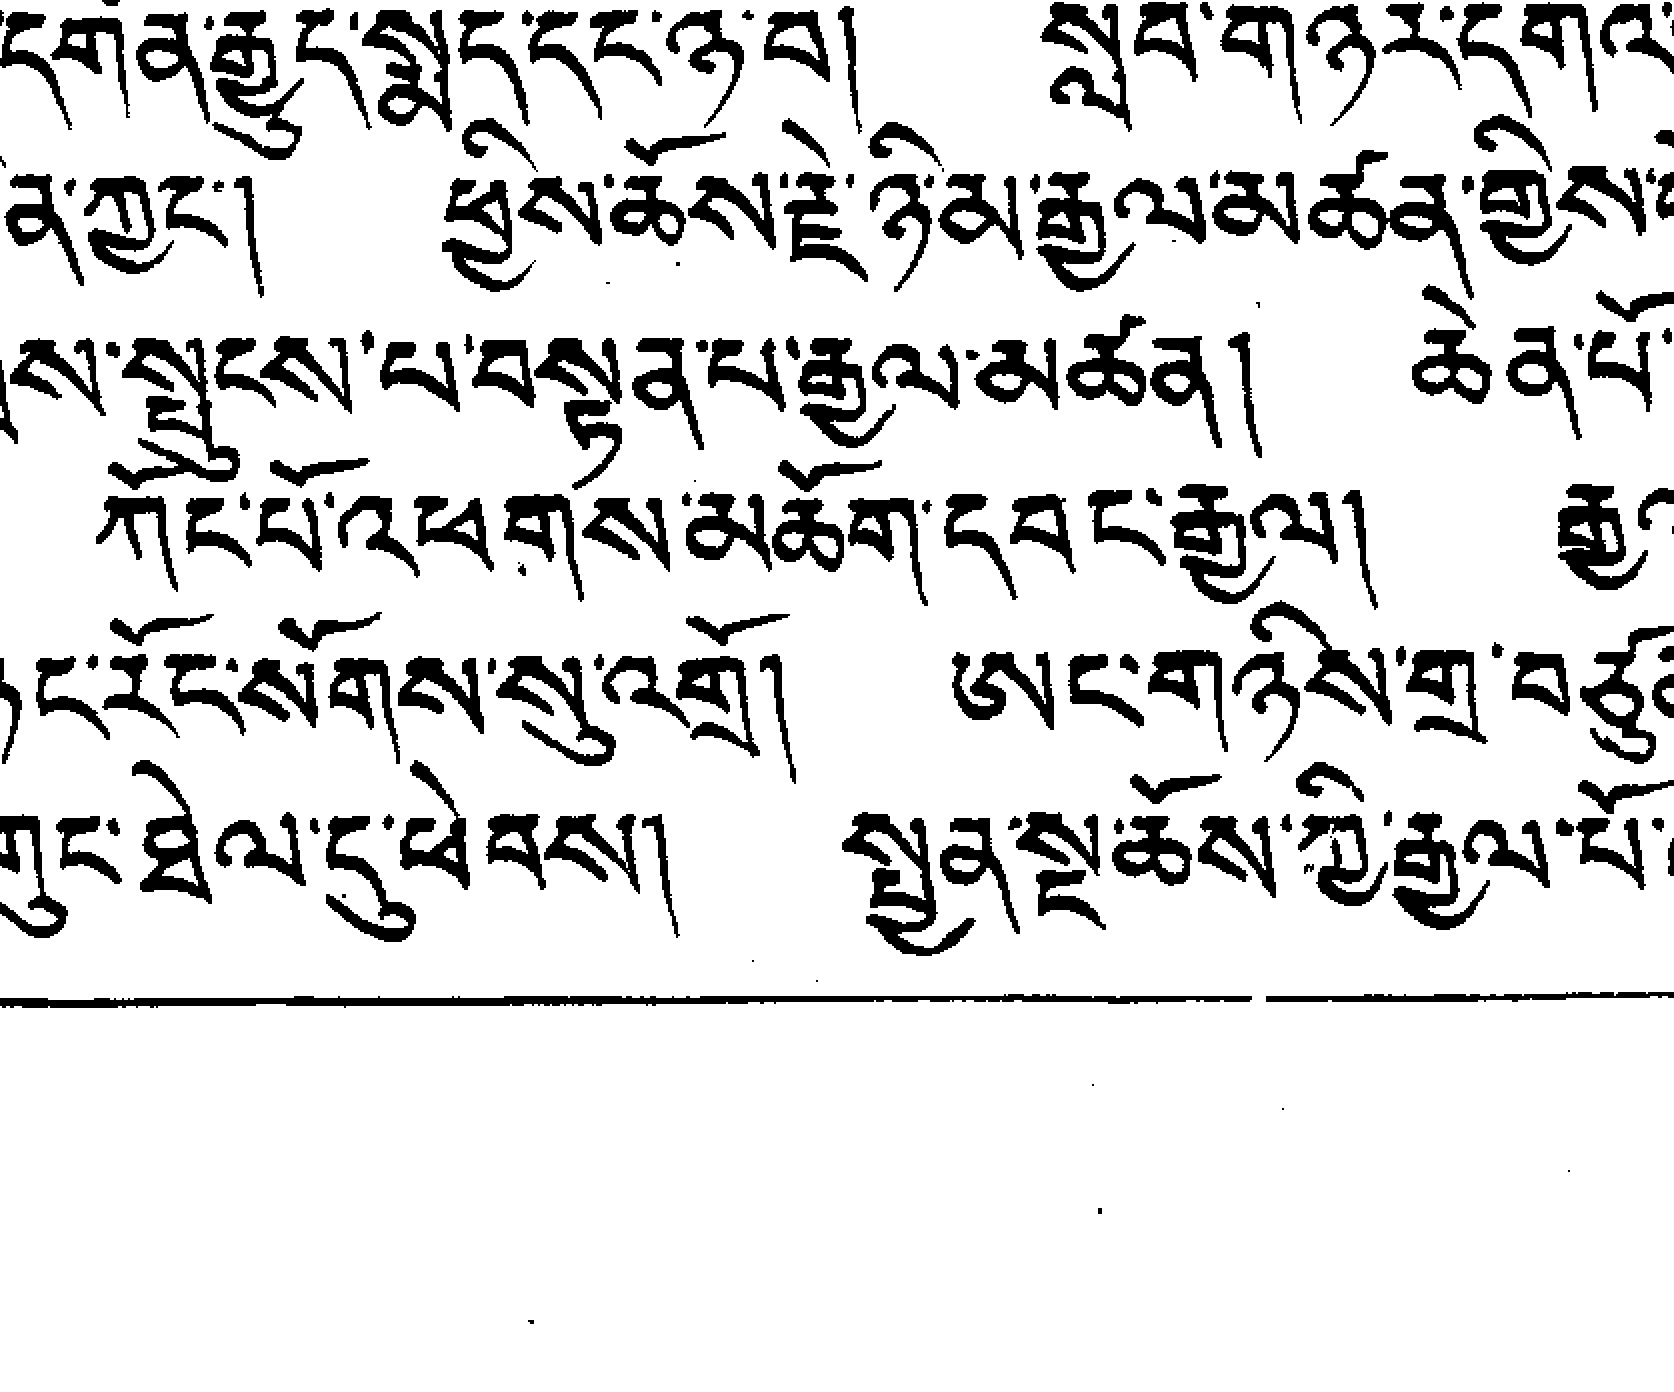 དགན་རྒྱུད་སྨྲད་དང་ཉ་བ། སླབ་གཉར་དགའ
ན་ཀྱང་། ཕྱིས་ཆོས་རྗེ་ཉི་མ་རྒྱལ་མཚན་གྱིས་
ས་སྦྱངས་པ་བསྟན་པ་རྒྱལ་མཚན། ཆེན་པོ་
ཀོང་པོ་འཕགས་མཆོག་དབང་རྒྱལ། རྒྱ
ང་རོང་སོགས་སུ་འགྲོ། ཨང་གཉིས་གྲ་བཙུན
གུང་ཐེལ་དུ་ཕེབས། སྤྱན་སྔ་ཆོས་ཀྱི་རྒྱལ་པོ་